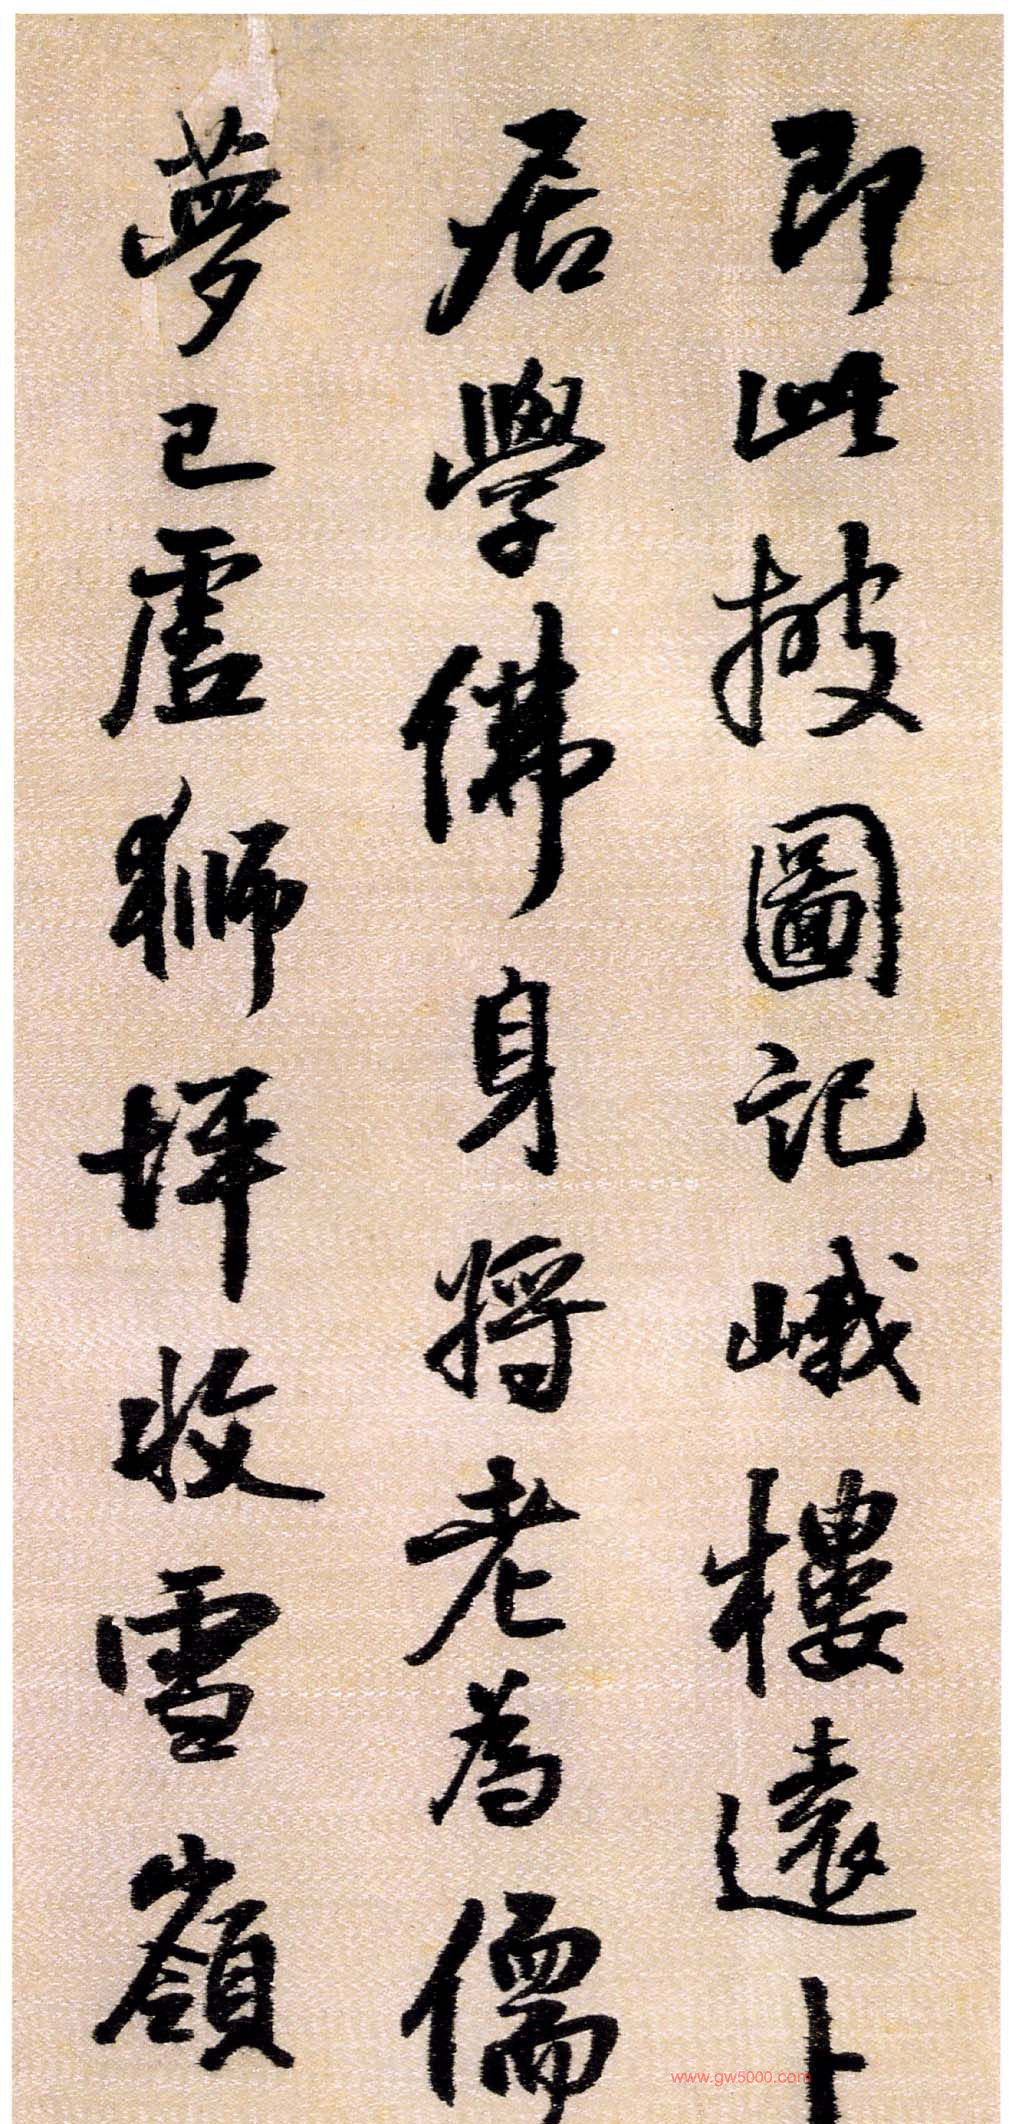 即此披圖記峨樓遠卜
居學佛身將老為儒
夢已虛獅坪收雪嶺
www.gw5000.com